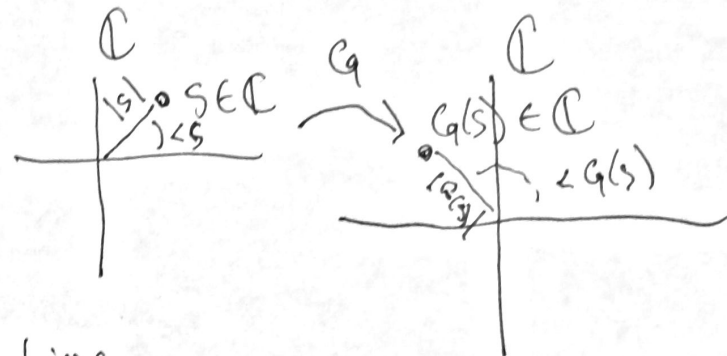 ℂ
|s|
s ∈ ℂ
∠s
G
ℂ
G(s) ∈ ℂ
|G(s)|
∠G(s)